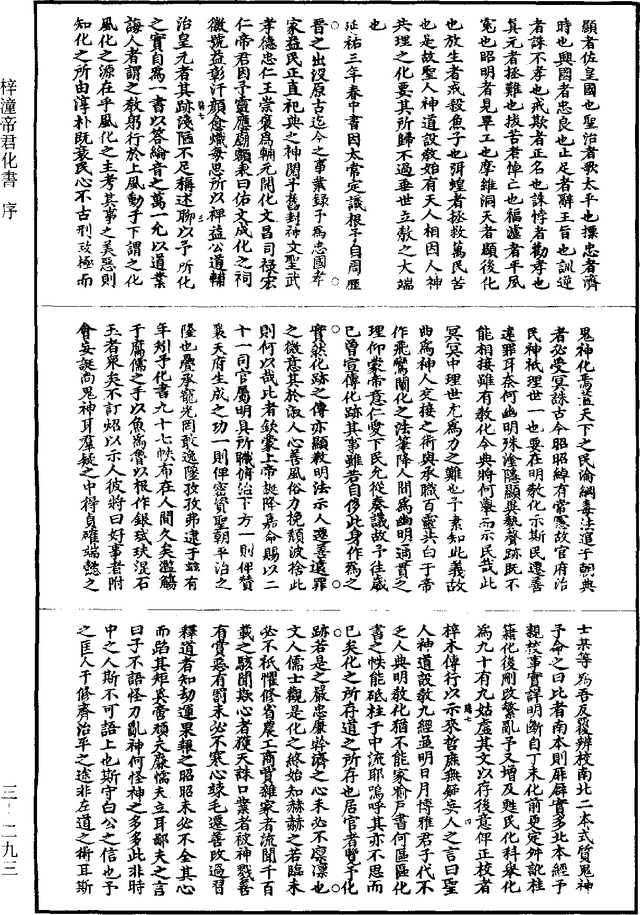 梓潼帝君化書 序
三—二九三
顯者佐皇國也聖治者歌太平也摽忠者濟
時也興國者忠良也止足者辭王旨也訓逆
者誅不孝也戒欺者正名也誅悖者勸孝也
真元者拯難也拔苦者悼亡也福謹者平風
寃也昭明者見畢工也摩維洞天者顯後化
也放生者戒殺魚子也弭蝗者拯救萬民苦
也是故聖人神道設教始有天人相因人神
共理之化要其所歸不過垂世立教之大端
也
延祐三年春中書因太常定議根予自周歷
晉之出没原古迄今之事業録予為忠國孝
家益民正直祀典之神閔予舊封神文聖武
孝德忠仁王崇褒為輔元開化文昌司禄宏
仁帝君因予靈應廟額柬曰佑文成化之祠
徽號益彰汗顔愈熾每思所以裨益公道輔
治皇元者其跡淺陋不足稱述聊以予所化
之實自為一書以答綸音之萬一允以道業
誨人者謂之教躬行於上風動于下謂之化
風化之源在乎風化之主考其事之美惡則
知化之所由淳朴既衰民心不古刑政極而
鬼神化焉蓋天下之民淪綱毒法逭于朝典
者必受冥誅古今昭昭綽有常憲故官府治
民神祇理世一也要在明教化示斯民遷善
違罪耳奈何幽明殊塗隱顯異勢聲跡既不
能相接雖有教化令典將何舉而示民哉此
冥冥中理世尤為力之難也予素知此義故
曲為神人交接之術與承職百靈共白于帝
作飛鸞闡化之法筆降人間為幽明通貫之
理仰蒙帝意仁愛下民允從奏議故予往歲
已曾宣傳化跡其事雖若自侈此身作為之
實然化跡之傳亦顯教明法示人遷善遠罪
之微意其於淑人心善風俗力挽頽波捨此
則何以哉比者欽蒙上帝誕降嘉命賜以二
十一司官屬明具所職俯治下方一則俾贊
襄天府生成之功一則俾密贊聖朝平治之
隆也疊承寵光罔敢逸隆孜孜弗逮于兹有
年矧予化書九十七帙布在人間久矣濫觴
于腐儒之手以魚為魯以根作銀珷玞混石
玉者衆矣不訂紹以示人彼將曰好事者附
會妄誕尚鬼神耳羣疑之中得貞確端懿之
士某等為吾反覆辨校南北二本式質鬼神
予命之曰比者南本則雁僻實多北本經予
親校事實詳明斷自丁未化前更定舛訛桂
籍化後剛改繁亂予又增及甦民化科舉化
為九十有九姑虚其文以存後意俾正校者
梓木傳行以示來哲庶無疑妄人之言曰聖
人神道設教九經並明日月博雅君子代不
乏人典明教化猶不能家喻戶曉書何區區化
書之帙能砥柱于中流耶嗚呼其亦不思而
已矣化之所存道之所存也居官者覽予化
跡若是之嚴忠廉幹濟之心未必不凛凛也
文人儒士觀是化之終始知赫赫之若臨未
必不祇懼修省農工商賈雜家者流聞千百
載之駭聞欺心者獲天誅口業者被神戮善
有賞惡有罰未必不寒心竦毛遷善改過習
釋道者知劫運果報之昭昭未必不全其心
而蹈其矩矣啻頑夫廉懦夫立耳鄙夫之言
曰子不語怪力亂神何怪神之多多此非時
中之人斯不可語上也斯守白公之信也予
之匡人于修齊治平之途非左道之術耳斯